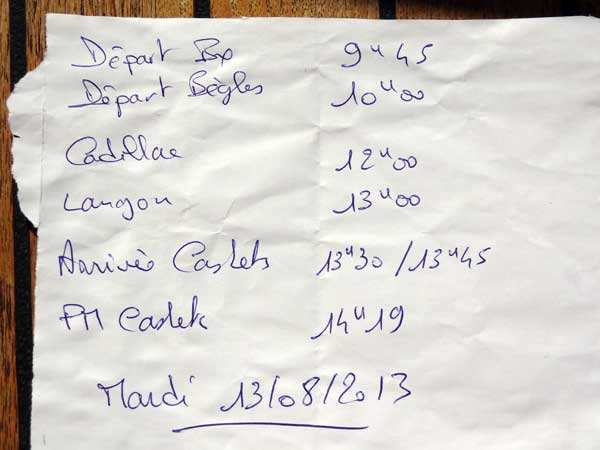 Départ Bx 9H45
Départ Bègles 10H00
Cadillac 12H00
Langon 13H00
Arrivée Castets 13H30 / 13H45
PM Castets 14H19
Mardi 13/08/2013